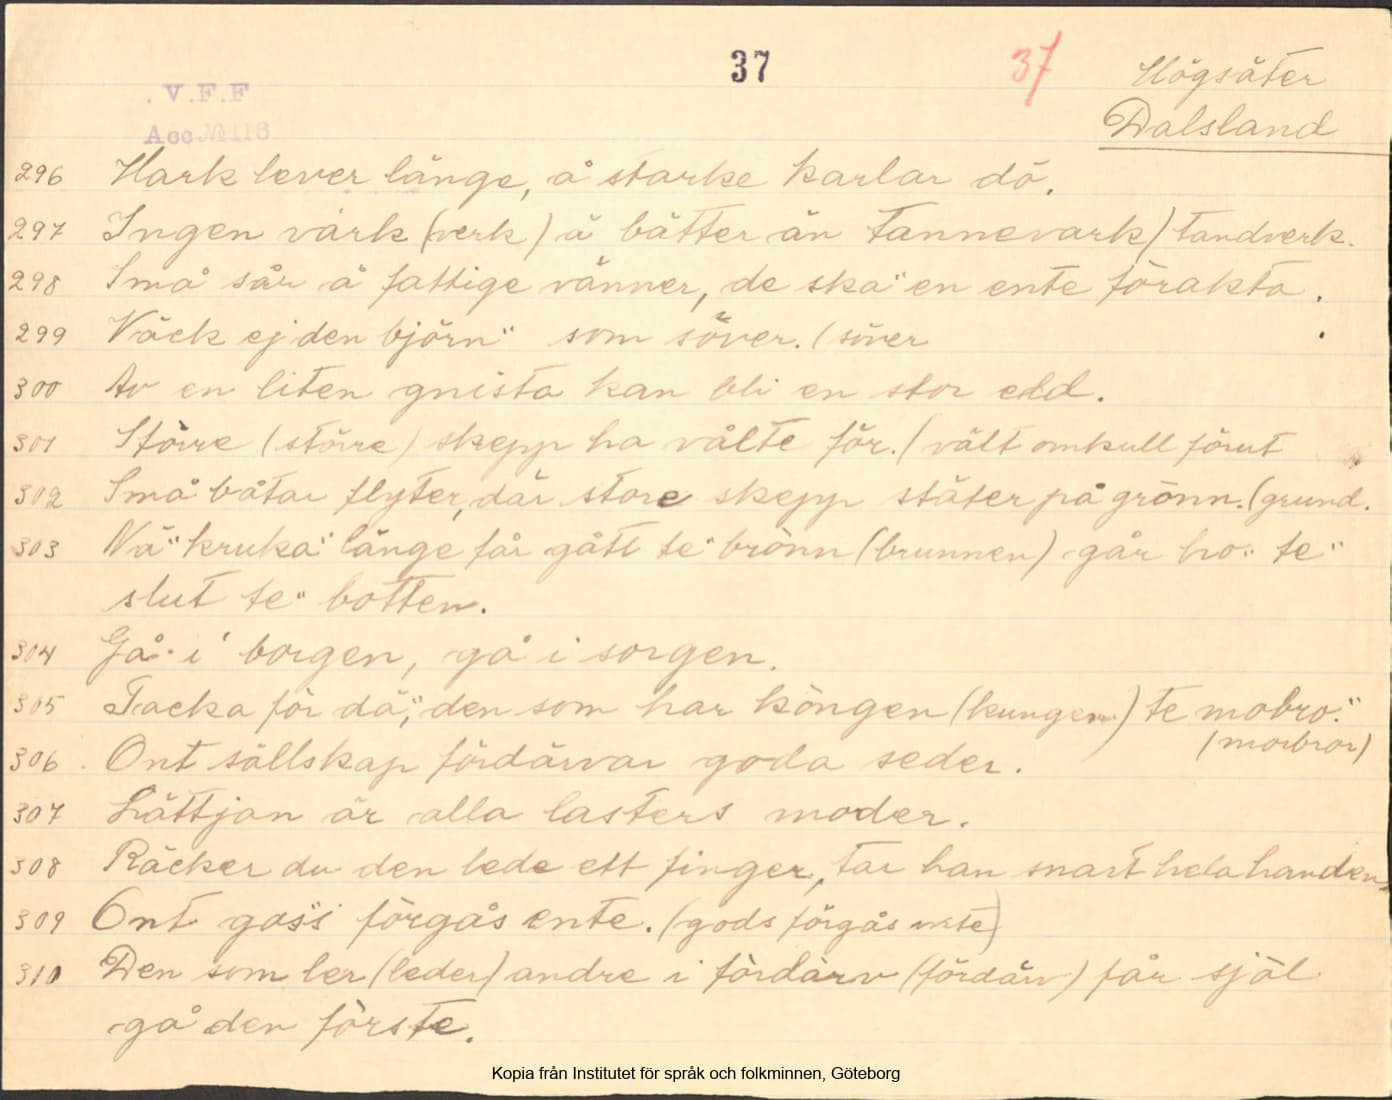 37
37
Högsäter
Dalsland
V.F.F
Acc. № 116
296 Hark lever länge, å starke karlar dö.
297 Ingen värk (verk) ä bätter än tannevark) tandverk.
298 Små sår å fattige vänner, de ska" en ente förakta.
299 Väck ej den björn" som söver. (söver
300 Av en liten gnista kan bli en stor eld.
301 Större (större) skepp ha välte för. (vält omkull förut
302 Små båtar flyter, där store skepp stäter på grönn. (grund.
303 Nä" kruka" länge får gått te" brönn (brunnen) går ho" te"
slut te" botten.
304 Gå i borgen, gå i sorgen.
305 Tacka för dä", den som har köngen (kungen) te mobro."
(morbror)
306. Ont sällskap fördärvar goda seder.
307 Lättjan är alla lasters moder.
308 Räcker du den lede ett finger, tar han snart hela handen,
309 Ont goss förgås ente. (gods förgås inte)
310 Den som ler (leder) andre i fördärv (fördärv) får själ
gå den förste.
Kopia från Institutet för språk och folkminnen, Göteborg